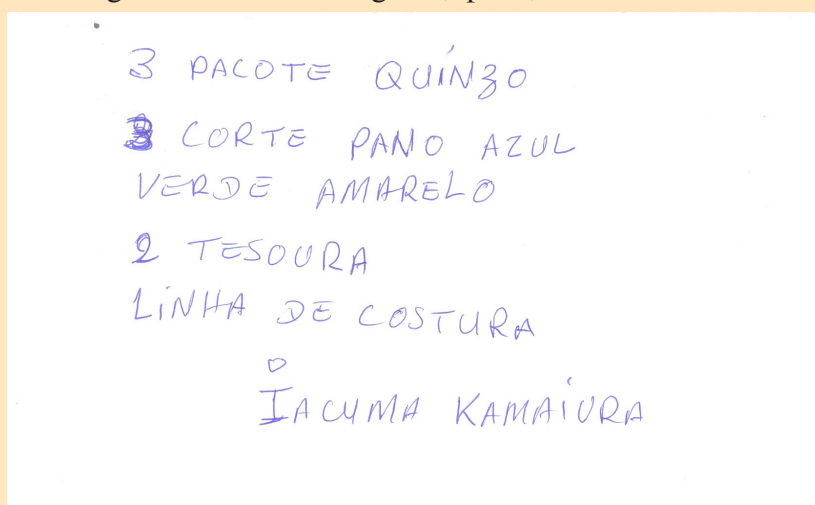 3 PACOTE QUÍNZO
3 CORTE PANO AZUL
VERDE AMARELO
2 TESOURA
LINHA DE COSTURA
IACUMA KAMAIURA